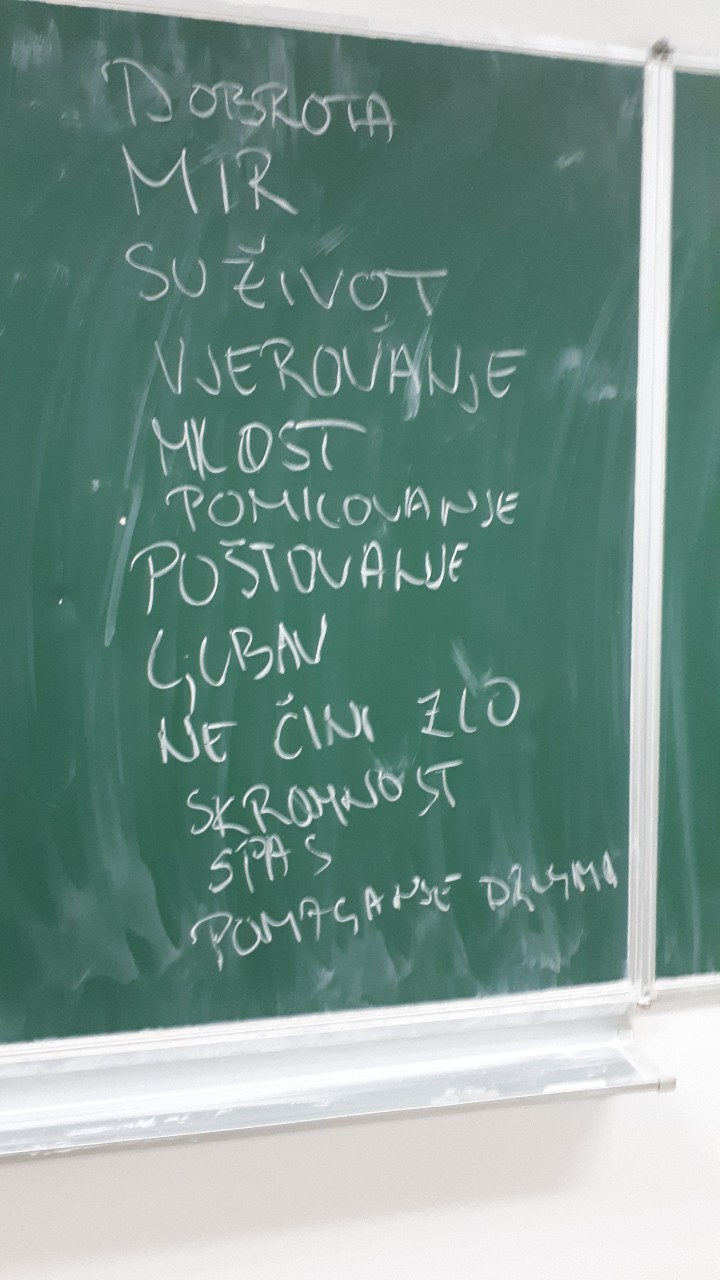 DOBROTA
MIR
SUŽIVOT
VJEROVANJE
MILOST
POMILOVANJE
POŠTOVANJE
LJUBAV
NE ČINI ZLO
SKROMNOST
SPAS
POMAGANJE DRUGIMA